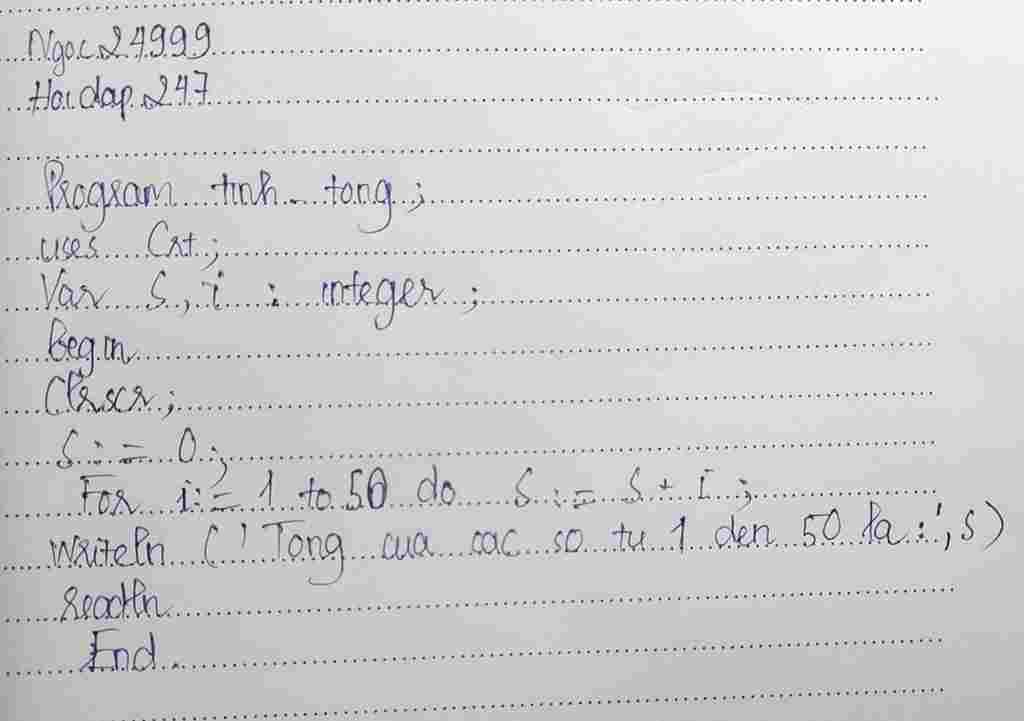 Ngoc24999
Hoidap247
Program tinh_tong;
uses Crt;
Var S, i : integer;
Begin
Clrscr;
S := 0;
For i := 1 to 50 do S := S + i;
Writeln ('Tong cua cac so tu 1 den 50 la :', S)
readln
End.